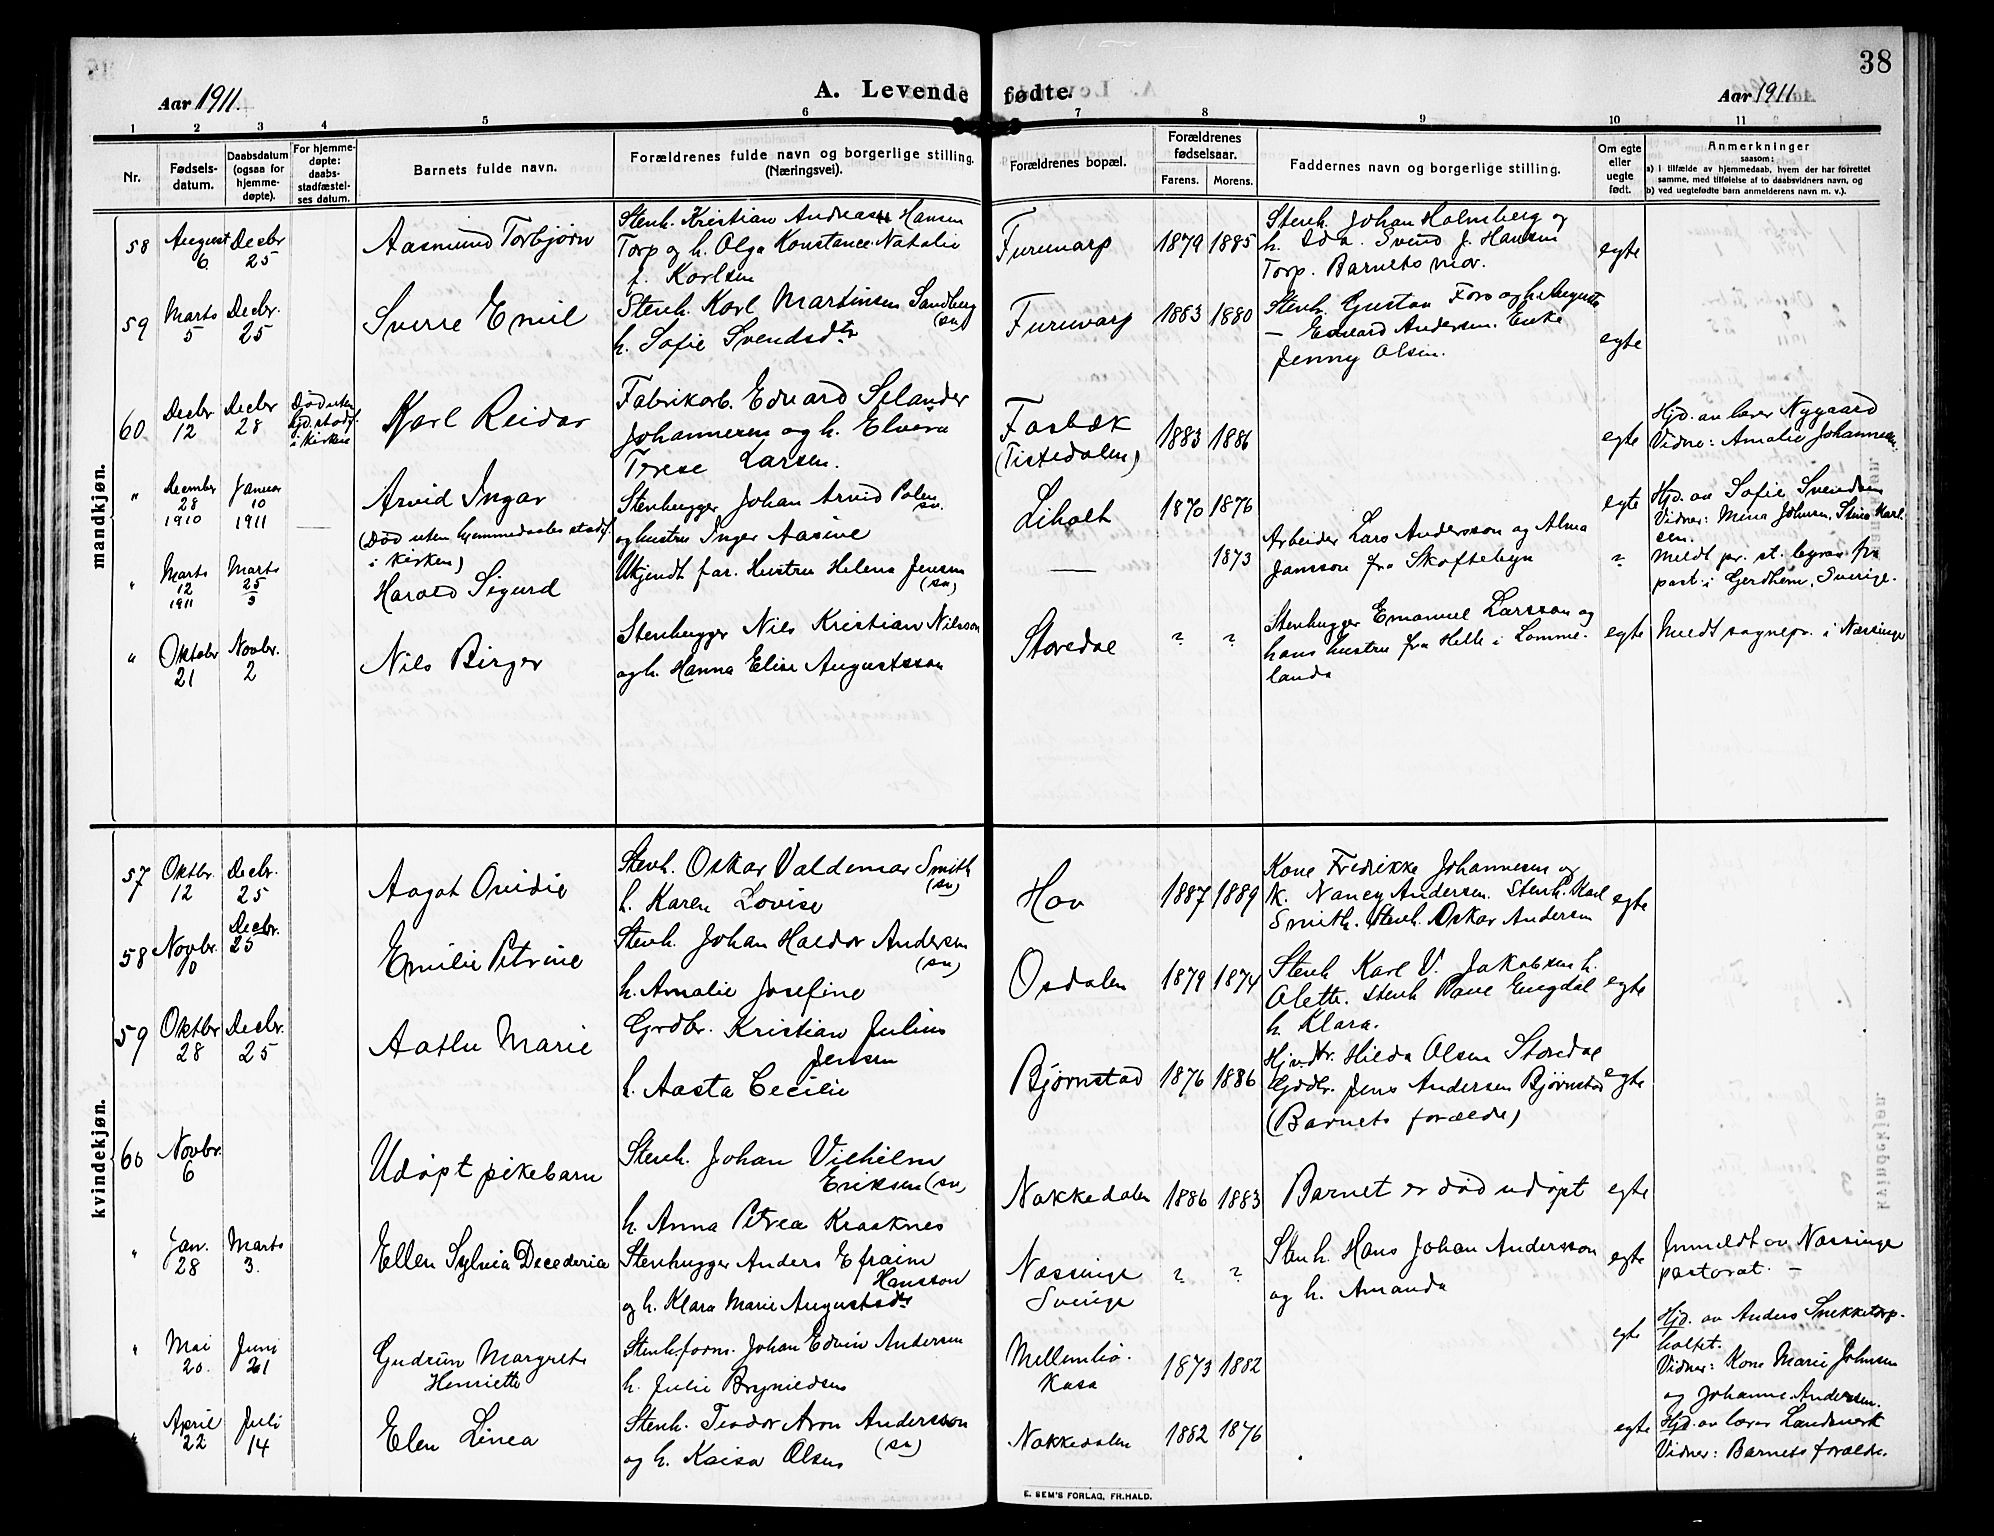 38
Aar 1911.
A. Levende fødte.
Aar 1911
1 2 3 4 5 6 7 8 9 10 11
Nr.
Fødsels-
datum.
Daabsdatum
(ogsaa for
hjemme-
døpte).
For hjemme-
døpte:
daabs-
stadfæstel-
ses datum.
Barnets fulde navn.
Forældrenes fulde navn og borgerlige stilling.
(Næringsvei).
Forældrenes bopæl.
Forældrenes
fødselsaar.
Farens. Morens.
Faddernes navn og borgerlige stilling.
Om egte
eller
uegte
født.
Anmerkninger
saasom:
a) i tilfælde av hjemmedaab, hvem der har forrettet
samme, med tilføielse af to daabsvidners navn, og
b) ved uegtefødte barn anmelderens navn m. v.).
mandkjøn.
58
August
6
Decbr
25
Aasmund Torbjørn
Stenh. Kristian Andreas Hansen
Torp og h. Olga Konstance Natalie
f. Karlsen
Furuvarp
1879 1885
Stenh. Johan Holmberg og
h. Ida. Svend J. Hansen
Torp. Barnets mor.
egte
59
Marts
5
Decbr.
25
Sverre Emil
Stenh. Karl Martinsen Sandberg
(sv)
h. Sofie Svendsdtr
Furuvarp
1883 1880
Stenh. Gustav Fors og h. Augusta
— Edvard Andersen. Enke
Jenny Olsen.
egte
60
Decbr
12
Decbr
28
Død uten
hjd. stadf.
i kirken
Karl Reidar
Fabrikarb. Edvard Selander
Johannesen og h. Elvera
Terese Larsen.
Fosbæk
(Tistedalen)
1883 1886
egte
Hjd. av lærer Nygaard
Vidne: Amalie Johannesen
"
December
28
1910
Januar
10
1911
—
Arvid Ingar
(Død uten hjemmedaabs stadf.
i kirken)
Stenhugger Johan Arvid Palm
sv.
og hustru Inger Aasine
Liholt
1870 1876
egte
Hjd. av Sofie Svendsen
Vidner: Mina Johnsen, Stina Karl-
sen.
"
Marts
12
1911
Marts
25
3
Harald Sigurd
Ukjendt far. Hustru Helena Jensen
(sv)
—
1873
Arbeider Lars Andersson og Alma
Jansson fra Skoftebyn
"
Meldt pr. st. begrav. fra
past. i Gerdhem, Sverige.
"
Oktobr
21
Novbr.
2
Nils Birger
Stenhugger Nils Kristian Nilsson
og h. Hanna Elise Augustsson
Storedal
? ?
Stenhugger Emanuel Larsson og
hans hustru fra Helle i Lomme-
landa
egte
Meldt sognepr. i Næsinge
kvindekjøn.
57
Oktbr.
12
Decbr.
25
Aagot Ovidie
Stenh. Oskar Valdemar Smith
(sv)
h. Karen Lovise
Hov
1887 1889
Kone Fredrikke Johannesen og
K. Nancy Andersen. Stenh. Karl
Smith. Stenh. Oskar Andersen
egte
58
Novbr.
Decbr.
25
Emilie Petrine
Stenh. Johan Haldor Andersen
(sv)
h. Amalie Josefine
Osdalen
1879 1874
Stenh Karl V. Jakobsen h.
Alette. Stenh Paul Engdal
h. Klara.
egte
59
Oktbr
28
Decbr.
25
Aatlu Marie
Grdbr. Kristian Julius
Jensen
h. Aasta Cecilie
Bjørnstad
1876 1886
Hjvdtr. Hilda Olsen Storedal
Grdbr. Jens Andersen Bjørnstad
(Barnets forældre)
egte
60
Novbr.
6
Udøpt pikebarn
Stenh. Johan Vilhelm
Eriksen (sv)
h. Anna Petrea Kraaknes
Nokkedalen
1886 1883
Barnet er død udøpt
egte
"
Jan.
28
Marts
3.
Ellen Sylvia Decederia
Stenhugger Anders Efraim
Hansson
og h. Klara Marie Augustsdtr
Næssinge
Sverige
? ?
Stenh. Hans Johan Andersson
og h. Amanda
egte
Inmeldt av Næssinge
pastorat. —
"
Mai
20.
Juni
21
Gudrun Margrete
Henriette
Stenh.form. Johan Edvin Andersen
h. Julie Brynildsen
Mellembø-
kasa
1873 1882
egte
Hjd. av Anders Snekketorp-
holtet.
Vidner: Kone Marie Johnsen
og Johanne Andersen.
April
22
Juli
14
Elen Linea
Stenh. Teodor Aron Andersson
(sv)
og h. Kaisa Olsen
Nokkedalen
1882 1876
egte
Hjd. av lærer Landsverk
Vidner: Barnets forældre.
E. SEM'S FORLAG, FR.HALD.